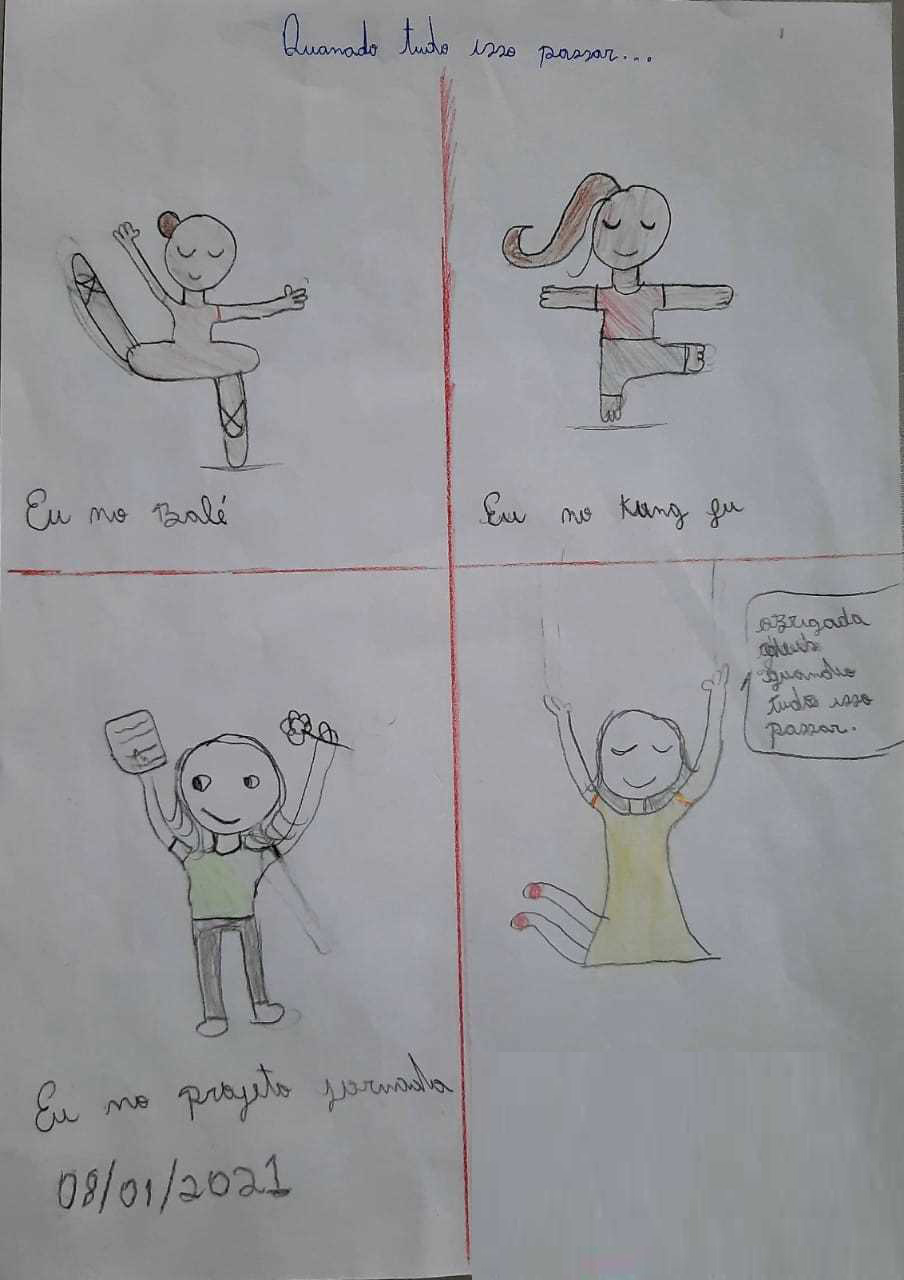 Quanado tudo isso passar...
Eu no Balé
Eu no Kung fu
obrigada
quando
tudo isso
passar.
Eu no projeto jornada
08/01/2021